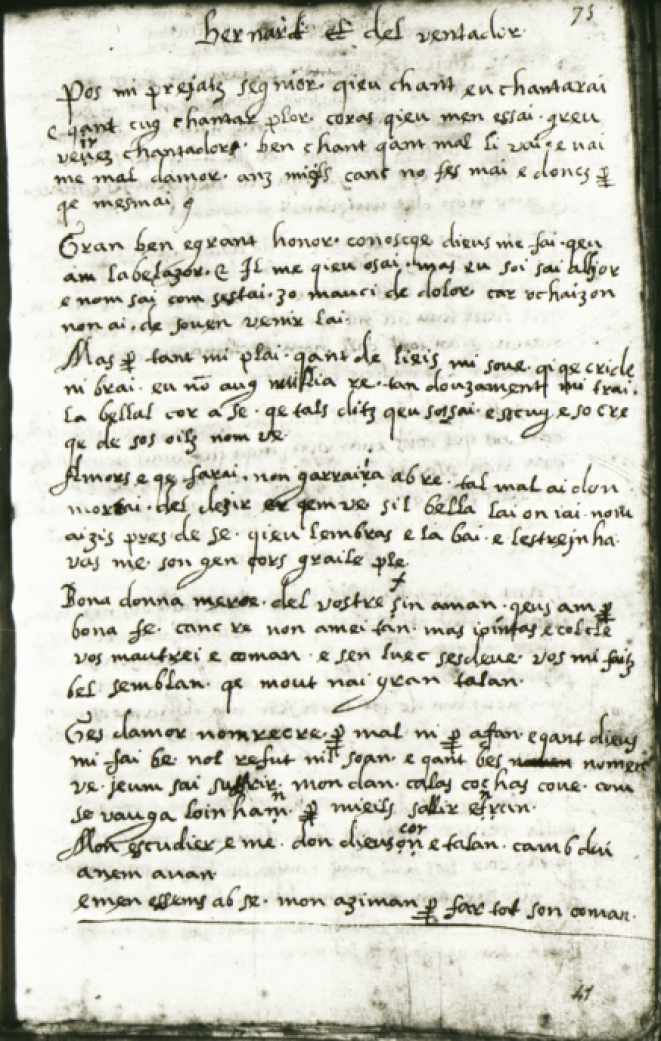 75
bernard et del ventador
Pos mi prejatz segnior · qieu chant eu chantarai
e qant cug chantar plor · coras qieu men essai · greu
veirez chantador · ben chant qant mal li vai · e vai
me mal damor · anz mielz canc no fes mai e doncs ꝑ
qe mesmai
Gran ben egrant honor · conoscqe dieus me fai · qeu
am labelazor · & Il me qieu osai · mas eu soi sai alhor
e nom sai com sestai · zo mauci de dolor · car ochaizon
non ai · de soven venir lai ·
Mas ꝑ tant mi plai · qant de lieis mi sove · qi qe cride
ni brai · eu nō aug nuillia re · tan douzament mi trai ·
la bellal cor a se · qe tals ditz qeu sossai · escug e so cre
qe de sos oilz nom ve ·
Amors e qe farai · non garrairia ab re · tal mal ai don
morrai · del dezir er qem ve · sil bella lai on iai · nom
aizis pres de se · qieu lembras e la bai · e lestreinha
vas me · son gen cors graile ple
Bona donna merce · del vostre fin aman · qeus am ꝑ
bona fe · canc re non amei tan · mas iointas e col cle
vos mautrei e coman · e sen luec sesdeve · vos mi faiz
bel semblan · qe mout nai gran talan ·
Ges damor nomrecre · ꝑ mal ni ꝑ afan · e qant dieus
mi fai be · nol refut nil soan · e qant bes nomen
ve · jeum sai suffrir · mon dan · calas cochas cove · com
se vauga loinhan · ꝑ mieils salir enan ·
Mon escudier e me · don dieus cor e talan · camb dui
anem avan ·
emen essems ab se · mon aziman ꝑ far tot son coman ·